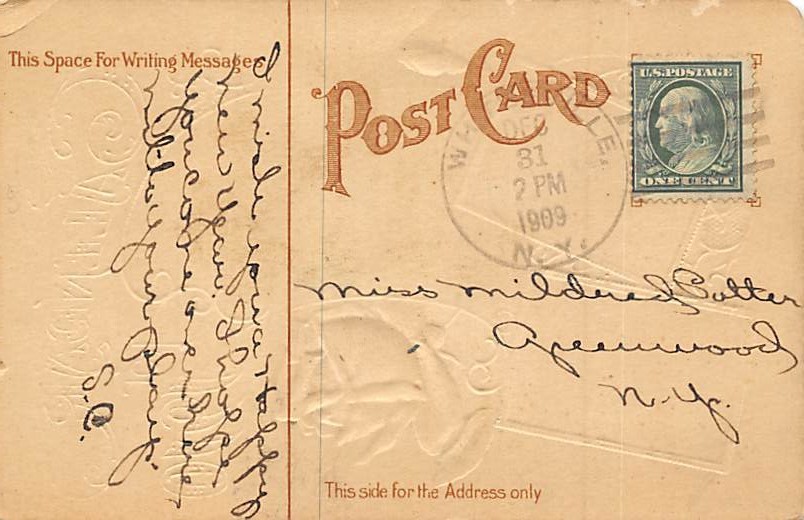 This Space For Writing Messages
POST CARD
U.S. POSTAGE
ONE CENT
DEC
31
2 PM
1909
N.Y.
I wish you a Happy
New Year. I hope
you come over here
S.C.
Miss Mildred Potter
Greenwood
N.Y.
This side for the Address only